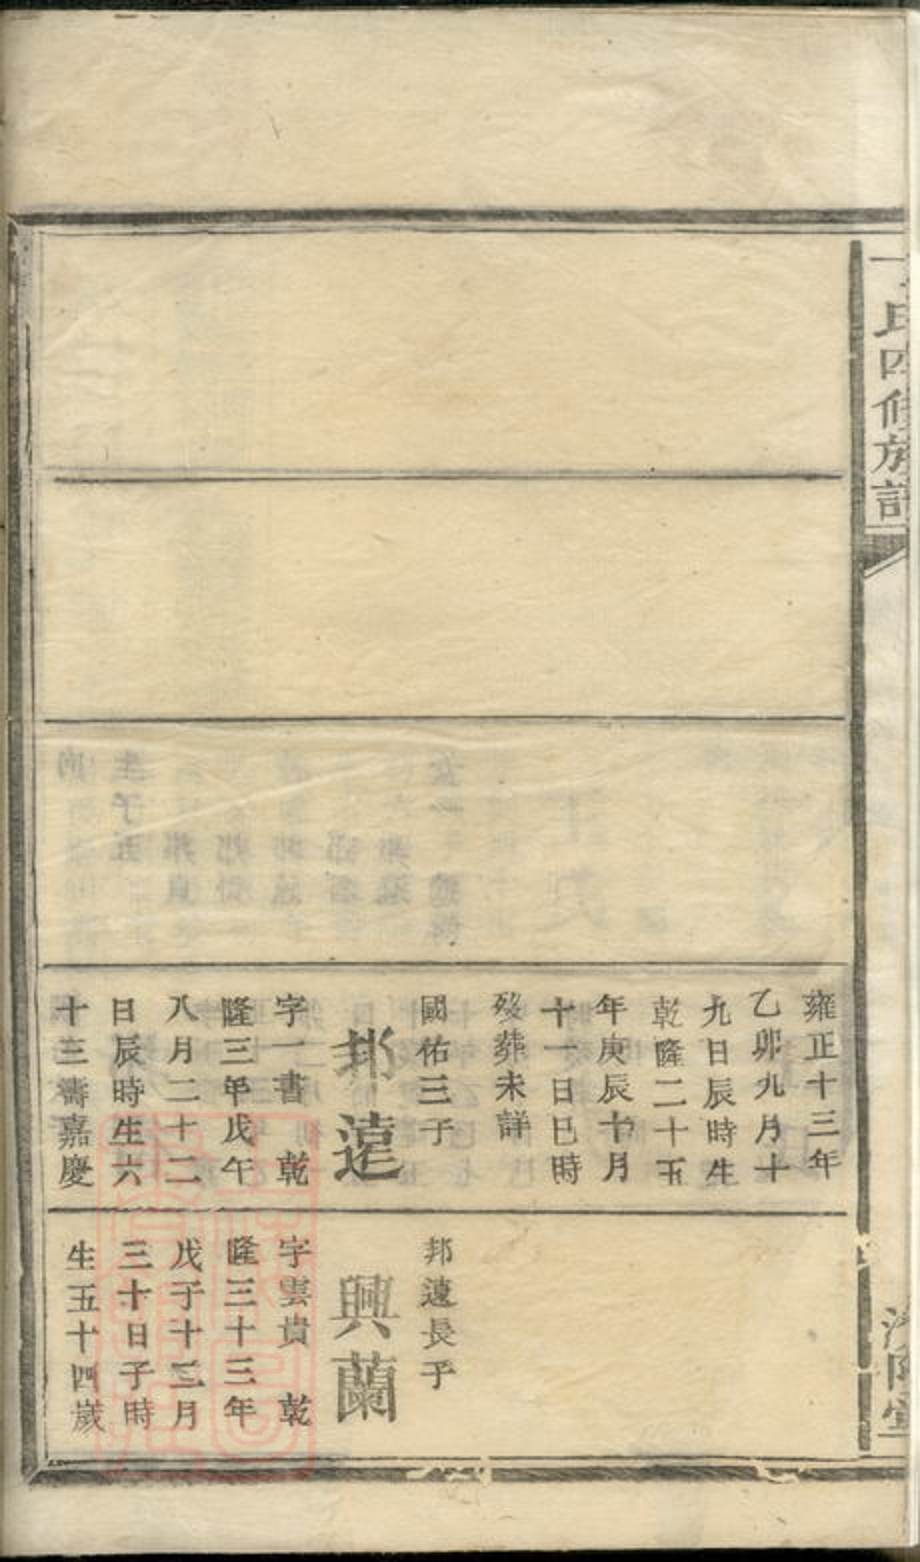 氏四修族譜
雍正十三年
乙卯九月十
九日辰時生
乾隆二十五
年庚辰十月
十一日巳時
歿葬未詳
國佑三子
邦遠
字一書 乾
隆三年戊午
八月二十二
日辰時生六
十三壽嘉慶
邦遠長子
興蘭
字雲貴 乾
隆三十三年
戊子十二月
三十日子時
生五十四歲